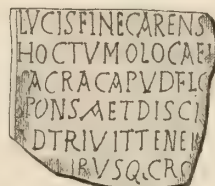 LVCIS FINE CARENS
HOC TVMOLO CAE
ACRA CAPVD FLO
PONS AET DISCI
DTRIVIT TENE
IBVSQ. CRO